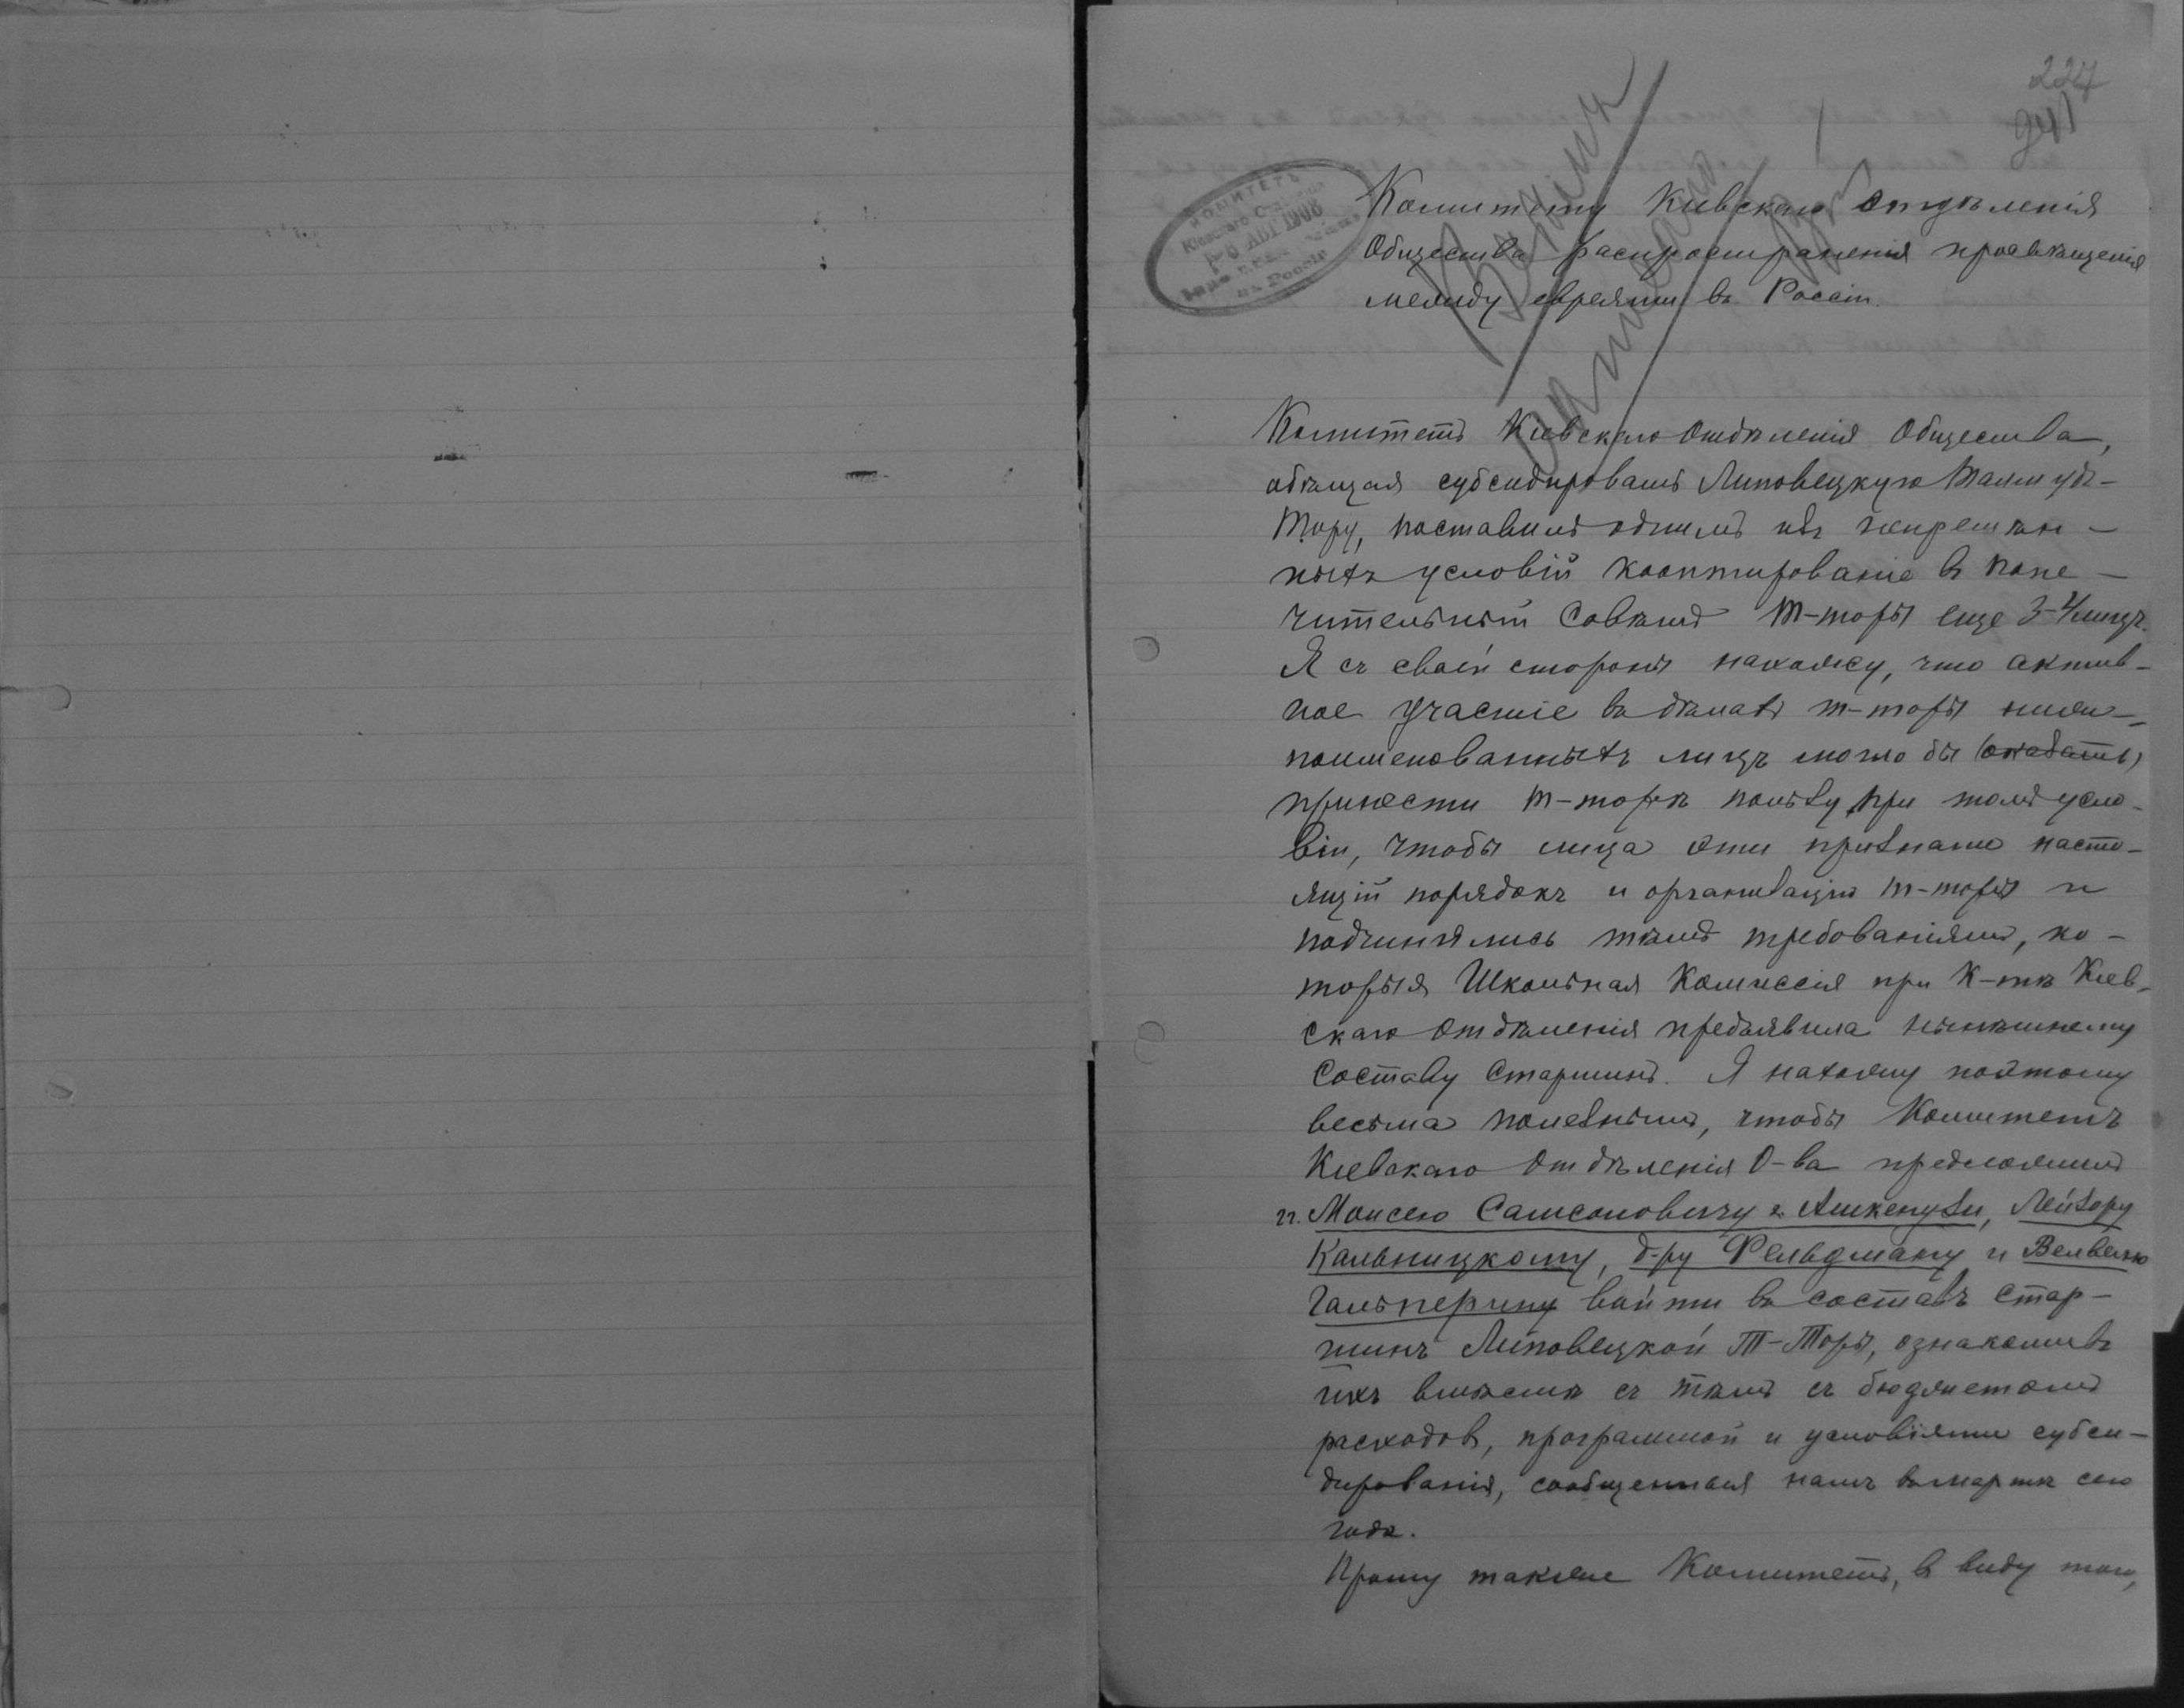 227
241
КОМИТЕТЪ
Кіевскаго
6 АВГ 1906
въ Россіи
Комитету Кіевскаго Отдѣленія
Общества распространенія просвѣщенія
между евреями въ Россіи.
Комитетъ Кіевскаго Отдѣленія Общества,
обѣщая субсидировать Липовецкую Талмудъ-
Тору, поставилъ однимъ изъ непремѣн-
ныхъ условій кооптированіе въ Попе-
чительный Совѣтъ Т-торы еще 3-4 лицъ.
Я съ своей стороны нахожу, что актив-
ное участіе въ дѣлахъ т-торы ниже-
поименованныхъ лицъ могло бы (оказать)
принести т-торѣ пользу, при томъ усло-
віи, чтобы лица эти признали насто-
ящій порядокъ и организацію т-торы и
подчинялись тѣмъ требованіямъ, ко-
торыя Школьная Комиссія при К-тѣ Кіев-
скаго Отдѣленія предъявила нынѣшнему
составу Старшинъ. Я нахожу поэтому
весьма полезнымъ, чтобы Комитетъ
Кіевскаго Отдѣленія О-ва предложилъ
гг. Моисею Самсоновичу Ашкенузи, Лейзору
Кальницкому, д-ру Фельдману и Велвелю
Гальперину войти въ составъ Стар-
шинъ Липовецкой Т-Торы, ознакомивъ
ихъ вмѣстѣ съ тѣмъ съ бюджетомъ
расходовъ, программой и условіями субси-
дированія, сообщенныя намъ въ мартѣ сего
года.
Прошу также Комитетъ, въ виду того,